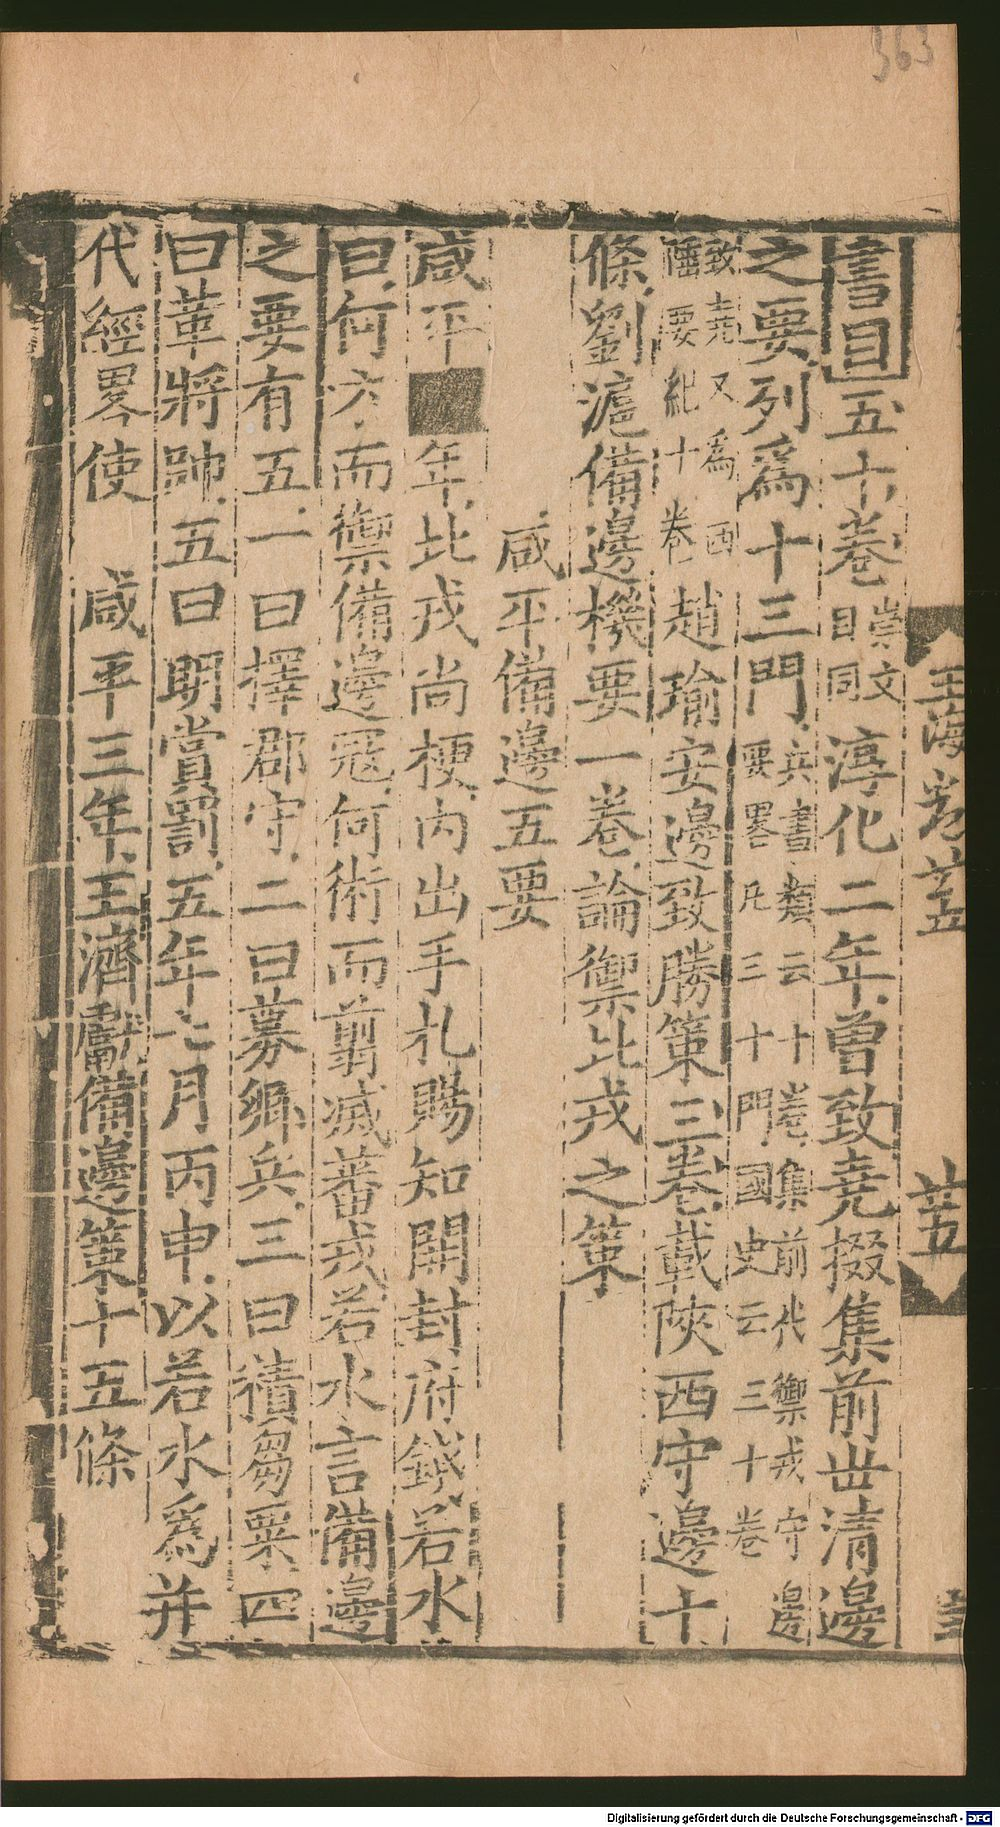 書目五十卷崇文目同淳化二年曽致堯掇集前世清邊
之要列爲十三門兵書類云十卷集前代禦戎守邊要畧凡三十門國史云三十卷
致堯又爲西陲要紀十卷趙瑜安邊致勝策三卷載陝西守邊十
條劉滬備邊機要一卷論禦北戎之策
咸平備邊五要
咸平年北戎尚梗内出手札賜知開封府錢若水
曰何方而禦備邊冦何術而翦滅蕃戎若水言備邊
之要有五一曰擇郡守二曰募鄉兵三曰積芻粟四
曰革將帥五曰明賞罰五年七月丙申以若水爲并
代經畧使 咸平三年王濟獻備邊策十五條
玉海卷廿五
廿五
363
Digitalisierung gefördert durch die Deutsche Forschungsgemeinschaft - DFG